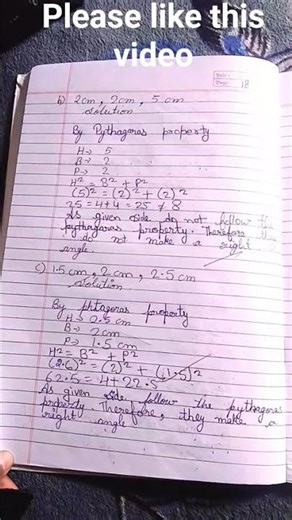 Please like this
video
Page: 18
b) 2cm, 2cm, 5cm
solution
By Pythagoras property
H→ 5
B→ 2
P→ 2
H² = B² + P²
(5)² = (2)² + (2)²
25 = 4+4 = 25 ≠ 8
As given side do not follow the
pythagoras property. Therefore
do not make a right
angle.
c) 1.5 cm, 2 cm, 2.5 cm
solution.
By phtagoras porperty
H→ 2.5 cm
B→ 2cm
P→ 1.5 cm
H² = B² + P²
(2.5)² = (2)² + (1.5)²
62.5 = 4+22.5
As given side follow the pythagoras
property. Therefore, they make a
right angle